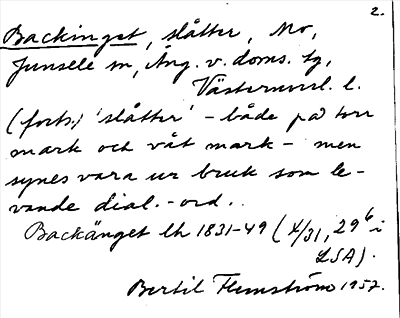 2.
Backinget, slåtter, Mo,
Junsele sn, Ång. v. doms. tg,
Västernorrl. l.
(forts.) 'slåtter' - både på torr
mark och våt mark - men
synes vara ur bruk som le-
vande dial.-ord..
Backänget lh 1831-49 (4/31, 29⁶ i
LSA).
Bertil Flemström 1957.